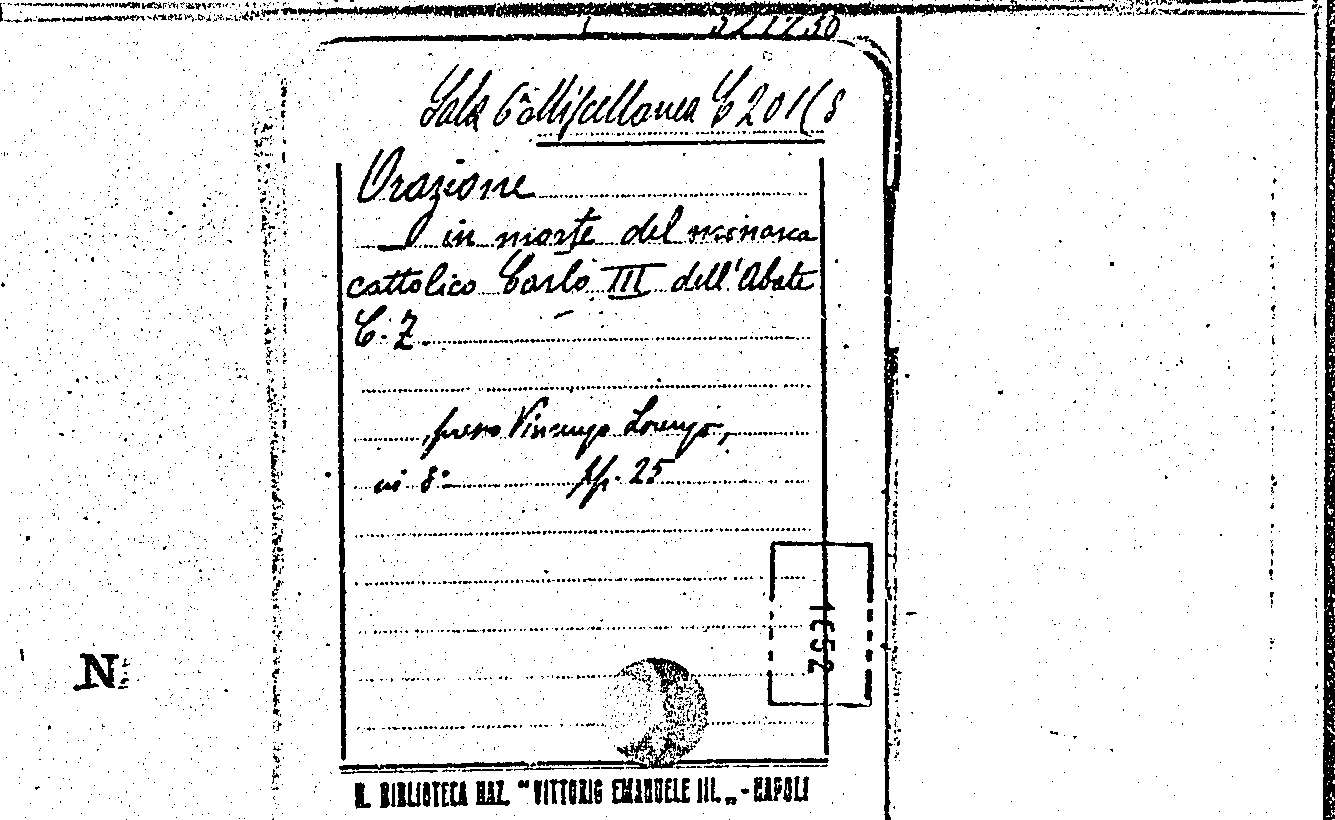 321730
Sala 6ª Miscellanea C 201(8
Orazione
in morte del monarca
cattolico Carlo III dell'Abate
C. Z.
presso Vincenzo Lorenzo,
in 8º pp. 25
1652
N.
R. BIBLIOTECA NAZ. "VITTORIO EMANUELE III. „ - NAPOLI